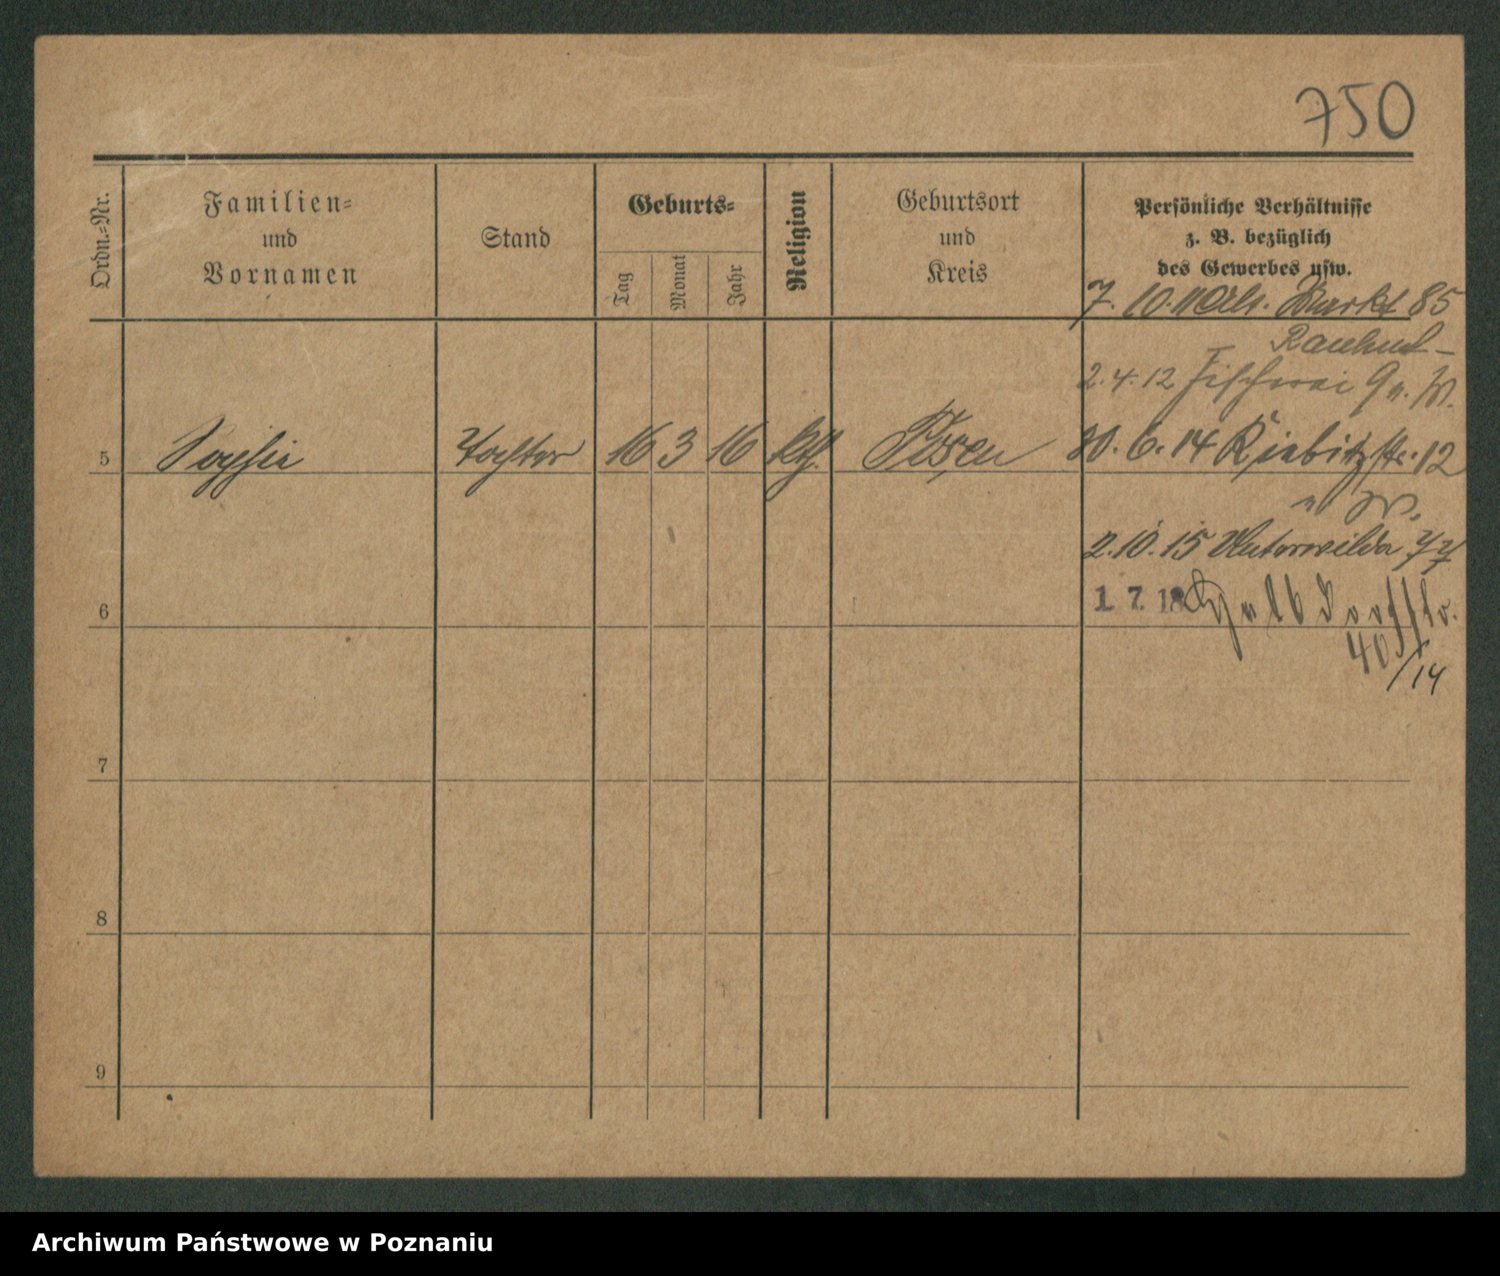 750
Ordn.-Nr.
Familien-
und
Vornamen
Stand
Geburts-
Tag
Monat
Jahr
Religion
Geburtsort
und
Kreis
Persönliche Verhältnisse
z. B. bezüglich
des Gewerbes usw.
7. 10. 11 Alt. Markt 85
2. 4. 12 Fischerei 9
5 Sophie Tochter 16 3 16 kth. Posen 30. 6. 14 Kiebitzstr. 12
2. 10. 15 Unterwilda 77
6
1. 7. 18
40/14
7
8
9
Archiwum Państwowe w Poznaniu